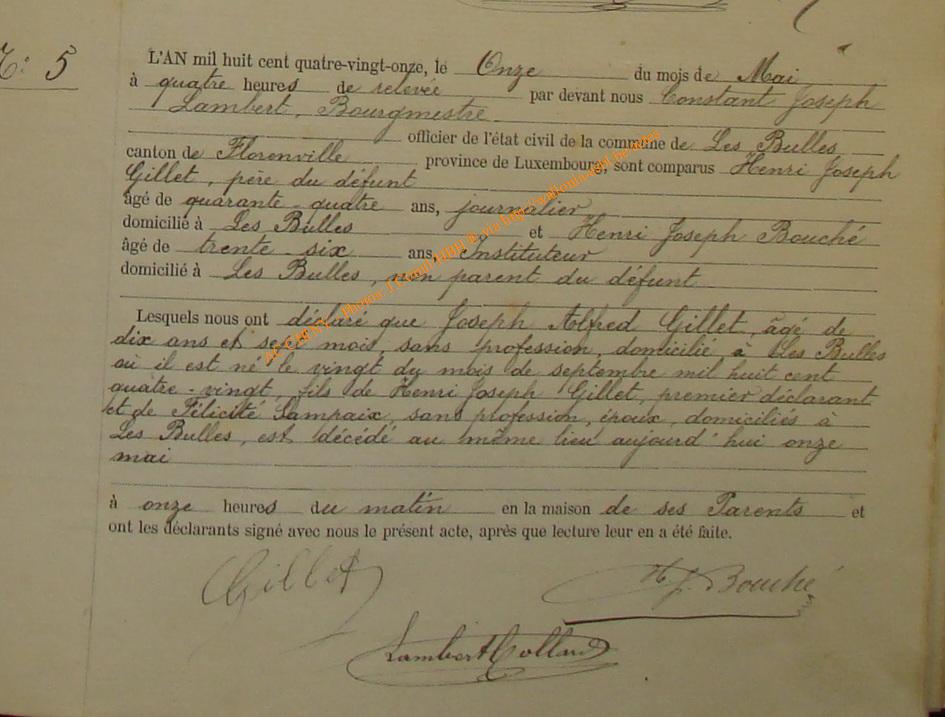 N° 5
L'AN mil huit cent quatre-vingt-onze, le Onze du mois de Mai
à quatre heures de relevée par devant nous Constant Joseph
Lambert, Bourgmestre
officier de l'état civil de la commune de Les Bulles
canton de Florenville province de Luxembourg, sont comparus Henri Joseph
Gillet, père du défunt
âgé de quarante-quatre ans, journalier
domicilié à Les Bulles et Henri Joseph Bouché
âgé de trente six ans, Instituteur
domicilié à Les Bulles, non parent du défunt
Lesquels nous ont déclaré que Joseph Alfred Gillet, âgé de
dix ans et sept mois, sans profession, domicilié à Les Bulles
où il est né le vingt du mois de septembre mil huit cent
quatre-vingt, fils de Henri Joseph Gillet, premier déclarant
et de Félicité Lampaix, sans profession, époux, domiciliés à
Les Bulles, est décédé au même lieu aujourd'hui onze
mai
à onze heures du matin en la maison de ses Parents et
ont les déclarants signé avec nous le présent acte, après que lecture leur en a été faite.
Gillet
H J. Bouché
Lambert Collard